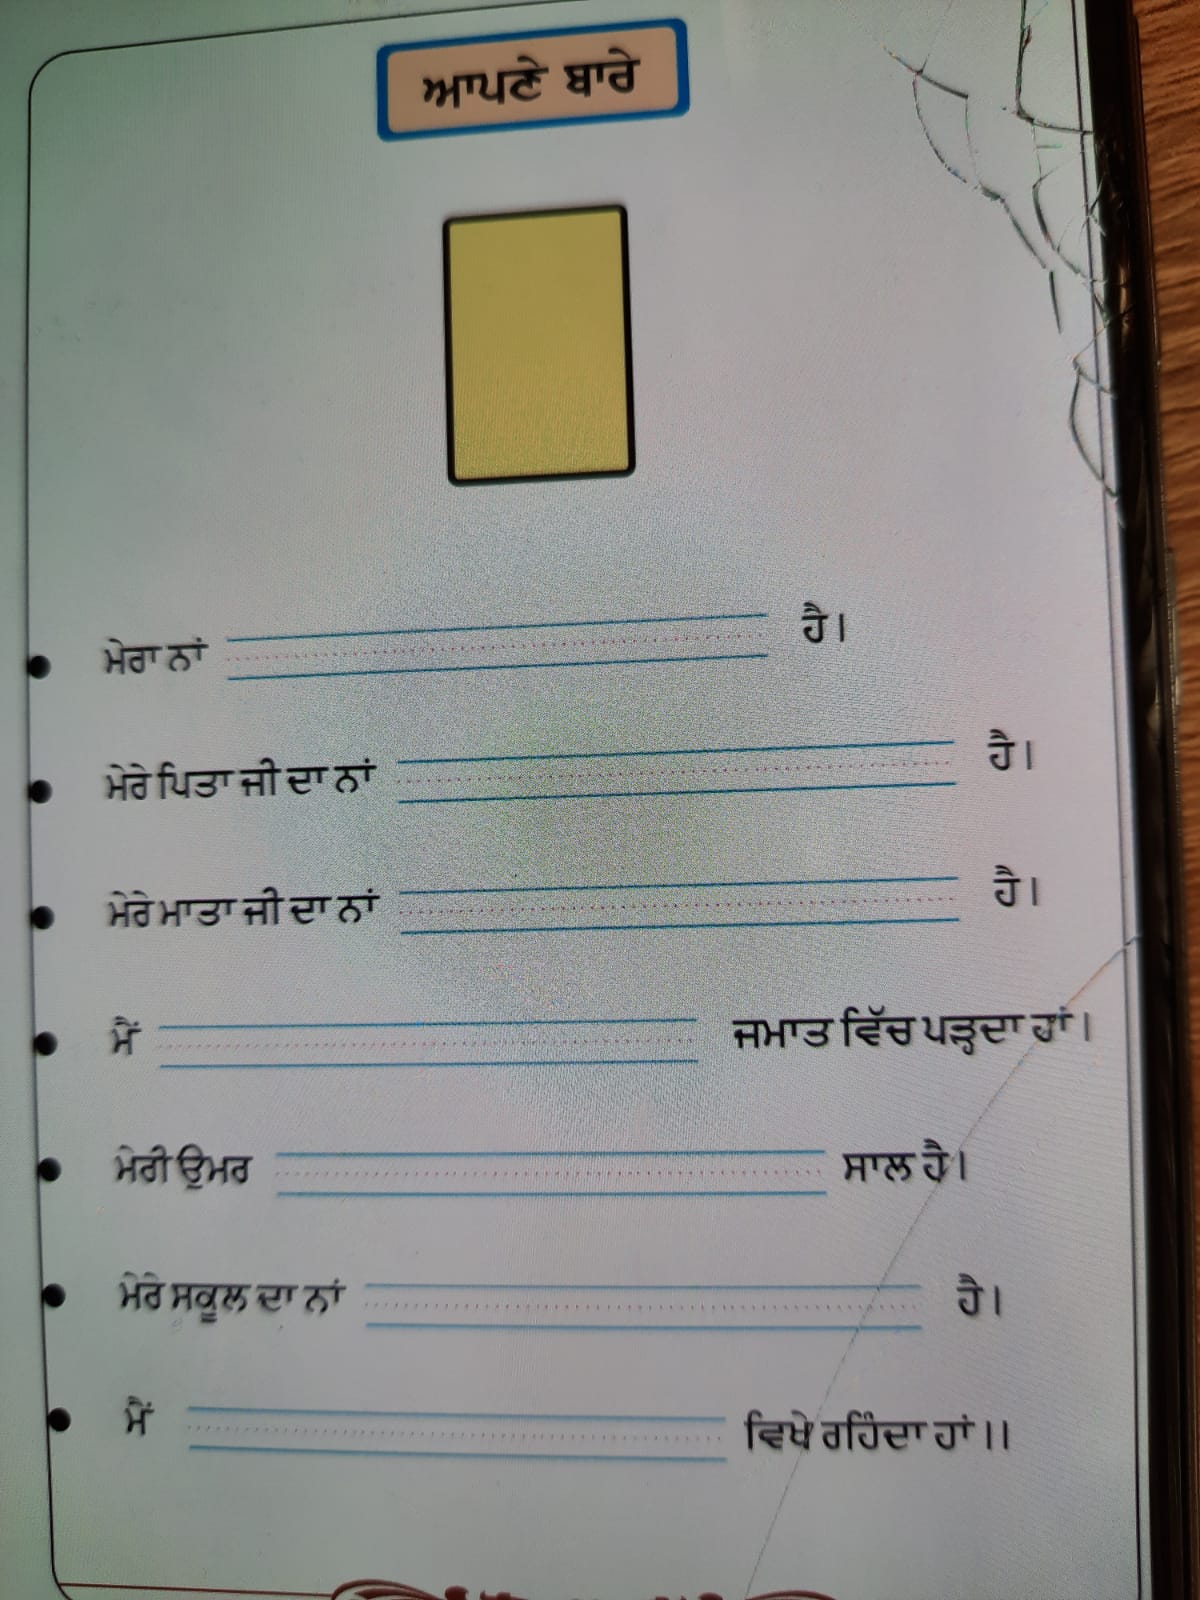 ਆਪਣੇ ਬਾਰੇ
ਮੇਰਾ ਨਾਂ ਹੈ।
ਮੇਰੇ ਪਿਤਾ ਜੀ ਦਾ ਨਾਂ ਹੈ।
ਮੇਰੇ ਮਾਤਾ ਜੀ ਦਾ ਨਾਂ ਹੈ।
ਮੈਂ ਜਮਾਤ ਵਿੱਚ ਪੜ੍ਹਦਾ ਹਾਂ।
ਮੇਰੀ ਉਮਰ ਸਾਲ ਹੈ।
ਮੇਰੇ ਸਕੂਲ ਦਾ ਨਾਂ ਹੈ।
ਮੈਂ ਵਿਖੇ ਰਹਿੰਦਾ ਹਾਂ।।